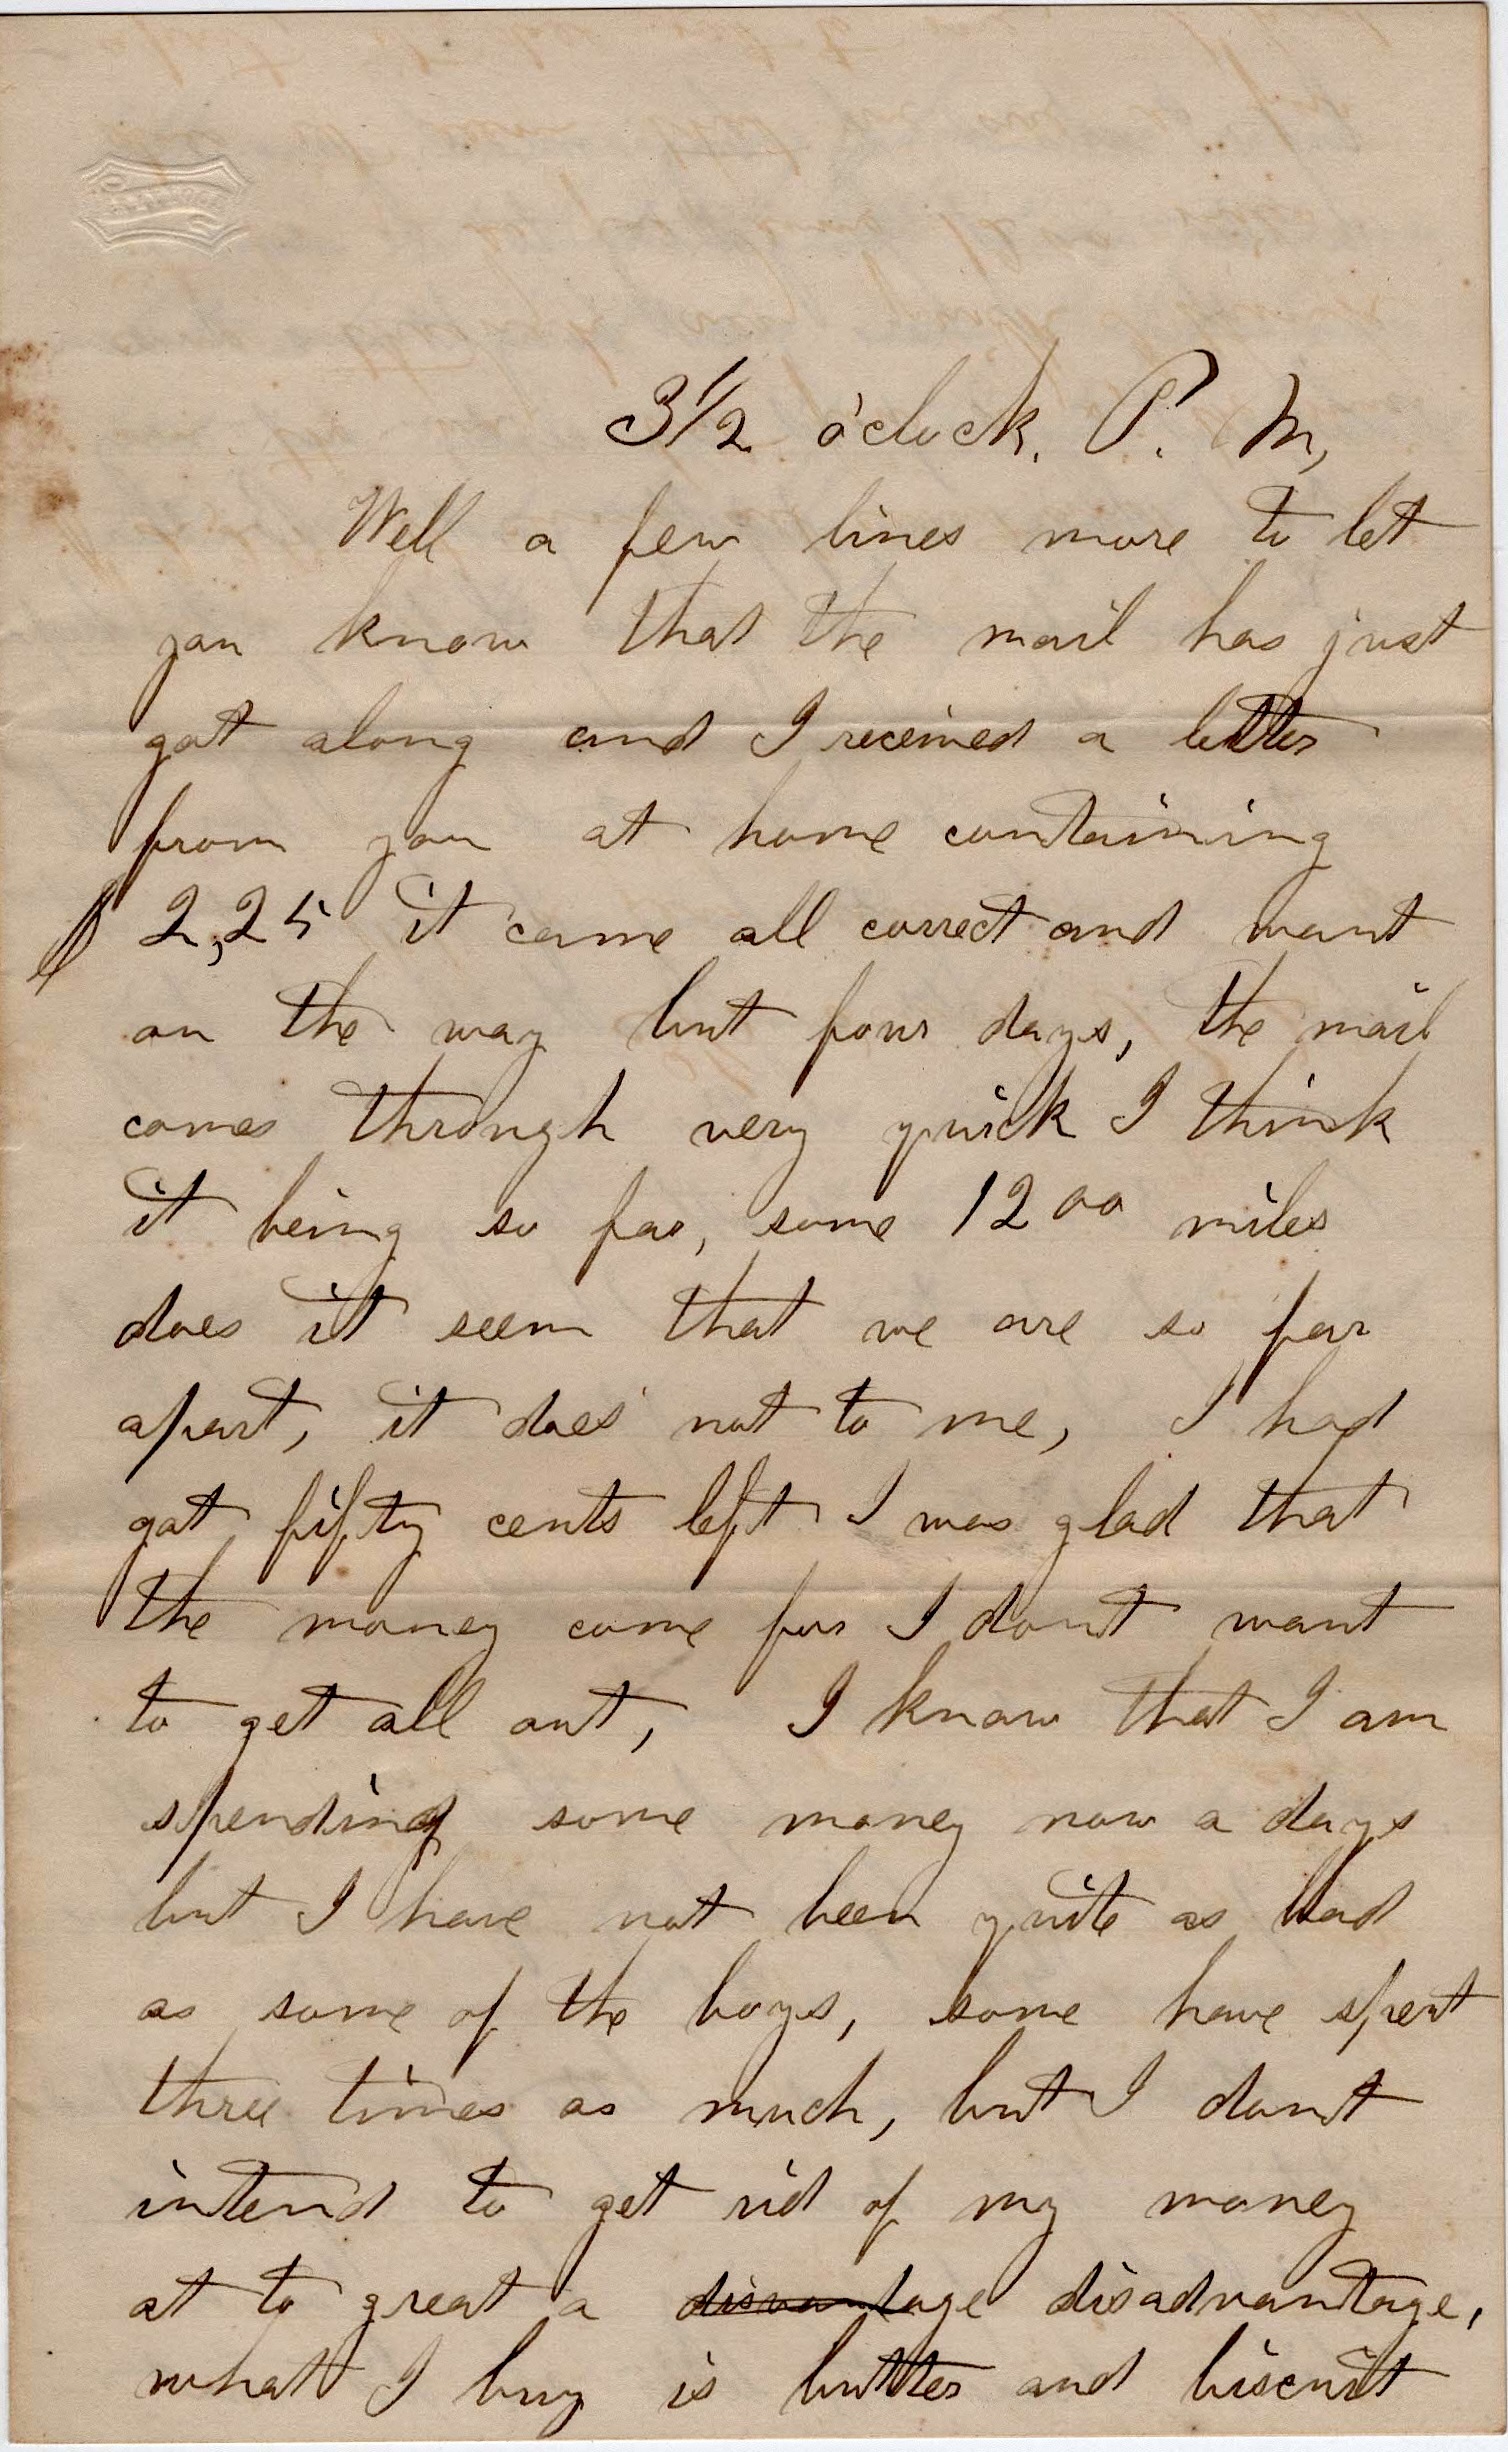 3 1/2 o'clock. P. M,
Well a few lines more to let
you know that the mail has just
got along and I received a letter
from you at home containing
$ 2,25 it came all correct and want
on the way but four days, the mail
comes through very quick I think
it being so far, some 1200 miles
does it seem that we are so far
apart, it does not to me, I had
got fifty cents left I was glad that
the money come for I dont want
to get all out, I know that I am
spending some money now a days
but I have not been quite as bad
as some of the boys, some have spent
three times as much, but I dont
intend to get rid of my money
at to great a disvantage disadvantage,
what I buy is butter and biscuit